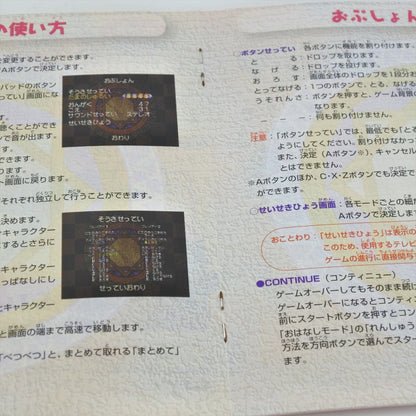 の使い方
を変更することができます。
Aボタンで決定します。
パッドのボタン
せってい」画面にな
聴くことができ
で音が出ます。
画面に戻ります。
それぞれ独立して行うことができます。
キャラクター
するとさらに
キャラクター
っぱなしにし
キャラクター
と画面の端まで高速で移動します。
「べつべつ」と、まとめて取れる「まとめて」
おぷしょん
そうさせってい
おんがく
こえ
サウンドせってい ステレオ
せいせきひょう
おわり
そうさせってい
せっていおわり
おぷしょん
ボタンせってい 各ボタンに機能を割り付けます。
と る:ドロップを取ります。
な げ る:ドロップを投げます。
お ろ す:画面全体のドロップを1段分
とってなげる:1つのボタンで、とる、なげる
うぞれんさ:ボタンを押すと、ゲーム背景
なります。
―:何も割り付けません。
注意:「ボタンせってい」では、最低でも「と
ようにしてください。割り付けは
また、決定(Aボタン※)、キャンセ
とはできません。
※Aボタンのほか、C・X・Zボタンでも決定
ができます。
せいせきひょう画面:各モードごとの
Aボタンで決定しま
おことわり:「せいせきひょう」は表示の
このため、使用するテレビ
ゲームの進行に直接関与
●CONTINUE(コンティニュー)
ゲームオーバーしてもそのまま続け
ゲームオーバーになるとコンティ
前にスタートボタンを押すとコン
「おはなしモード」の「れんしゅう
方法を方向ボタンで選んでスター
ます。